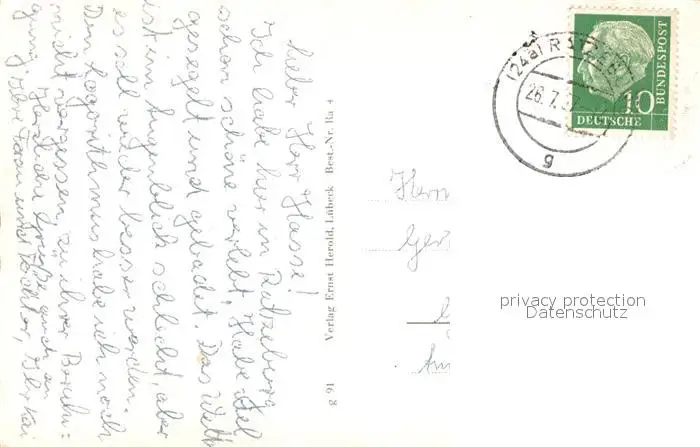 Lieber Herr Hasse!
Ich habe hier in Ratzeburg
schon schöne verlebt. Habe viel
gesegelt und gebadet. Das Wett
ist im Augenblick schlecht, aber
es soll wieder besser werden.
Den Logarithmus habe ich noch
nicht vergessen, zu ihrer Beruhi=
gung. Herzliche Grüße auch an
Ihre Frau und Tochter, Ihr Kai
Verlag Ernst Herold, Lübeck Best.-Nr. Ra 4
g 61
(24a) R
26.7.5
g
10
DEUTSCHE
BUNDESPOST
Herrn
Ger
privacy protection
Datenschutz